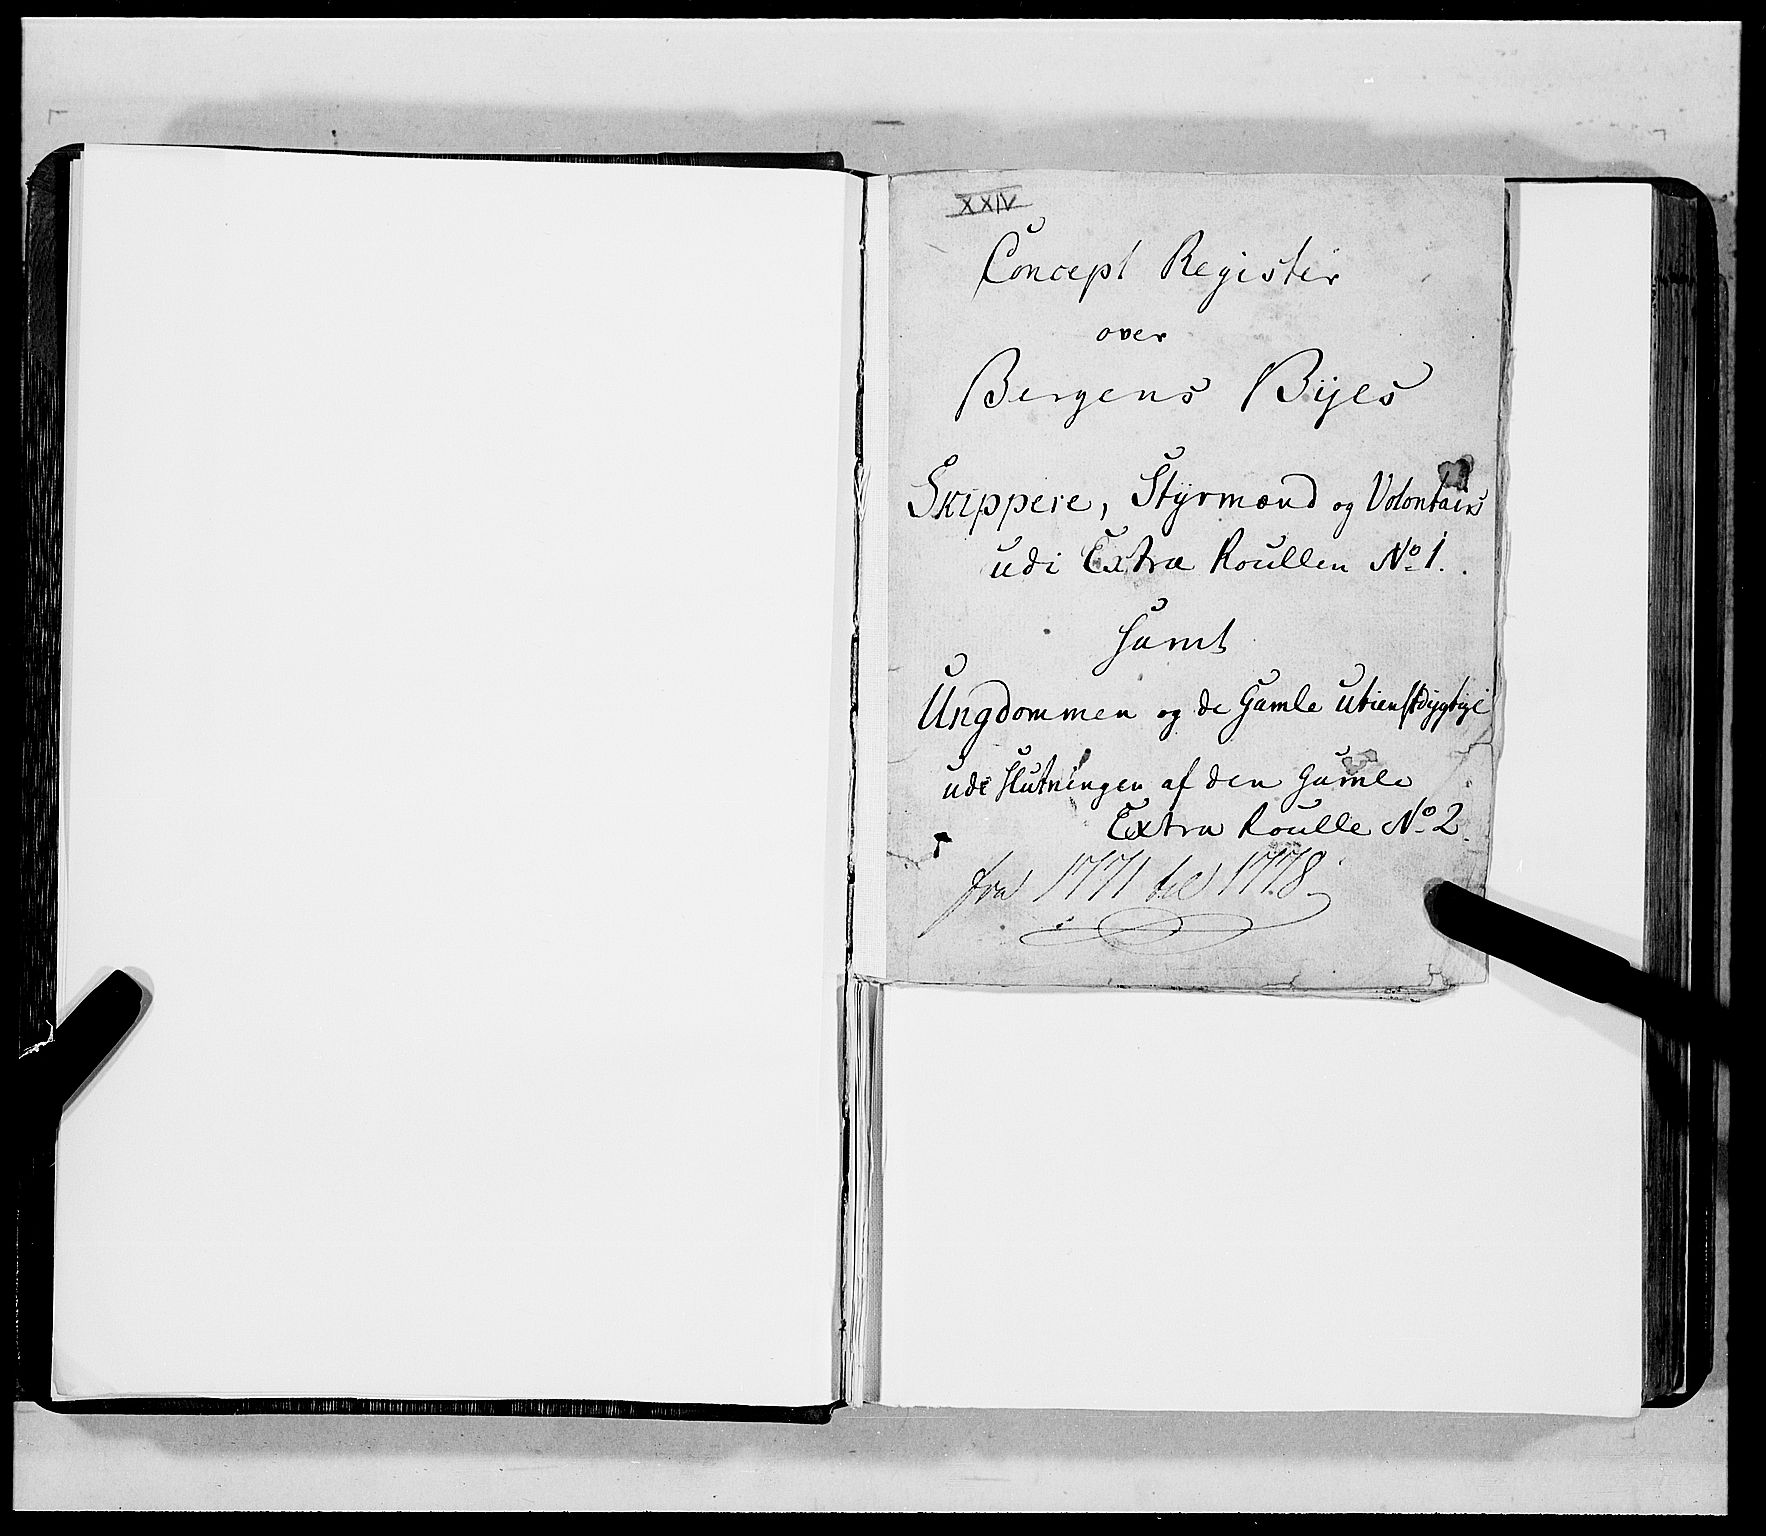 XXIV
Concept Register
over
Bergens Byes
Skippere, Styrmænd og Volontairs
udi Extra Roullen No 1.
samt
Ungdommen og de Gamle utienstdygtige
udi Slutningen af den gamle
Extra Roulle No 2.
fra 1771 til 1778.